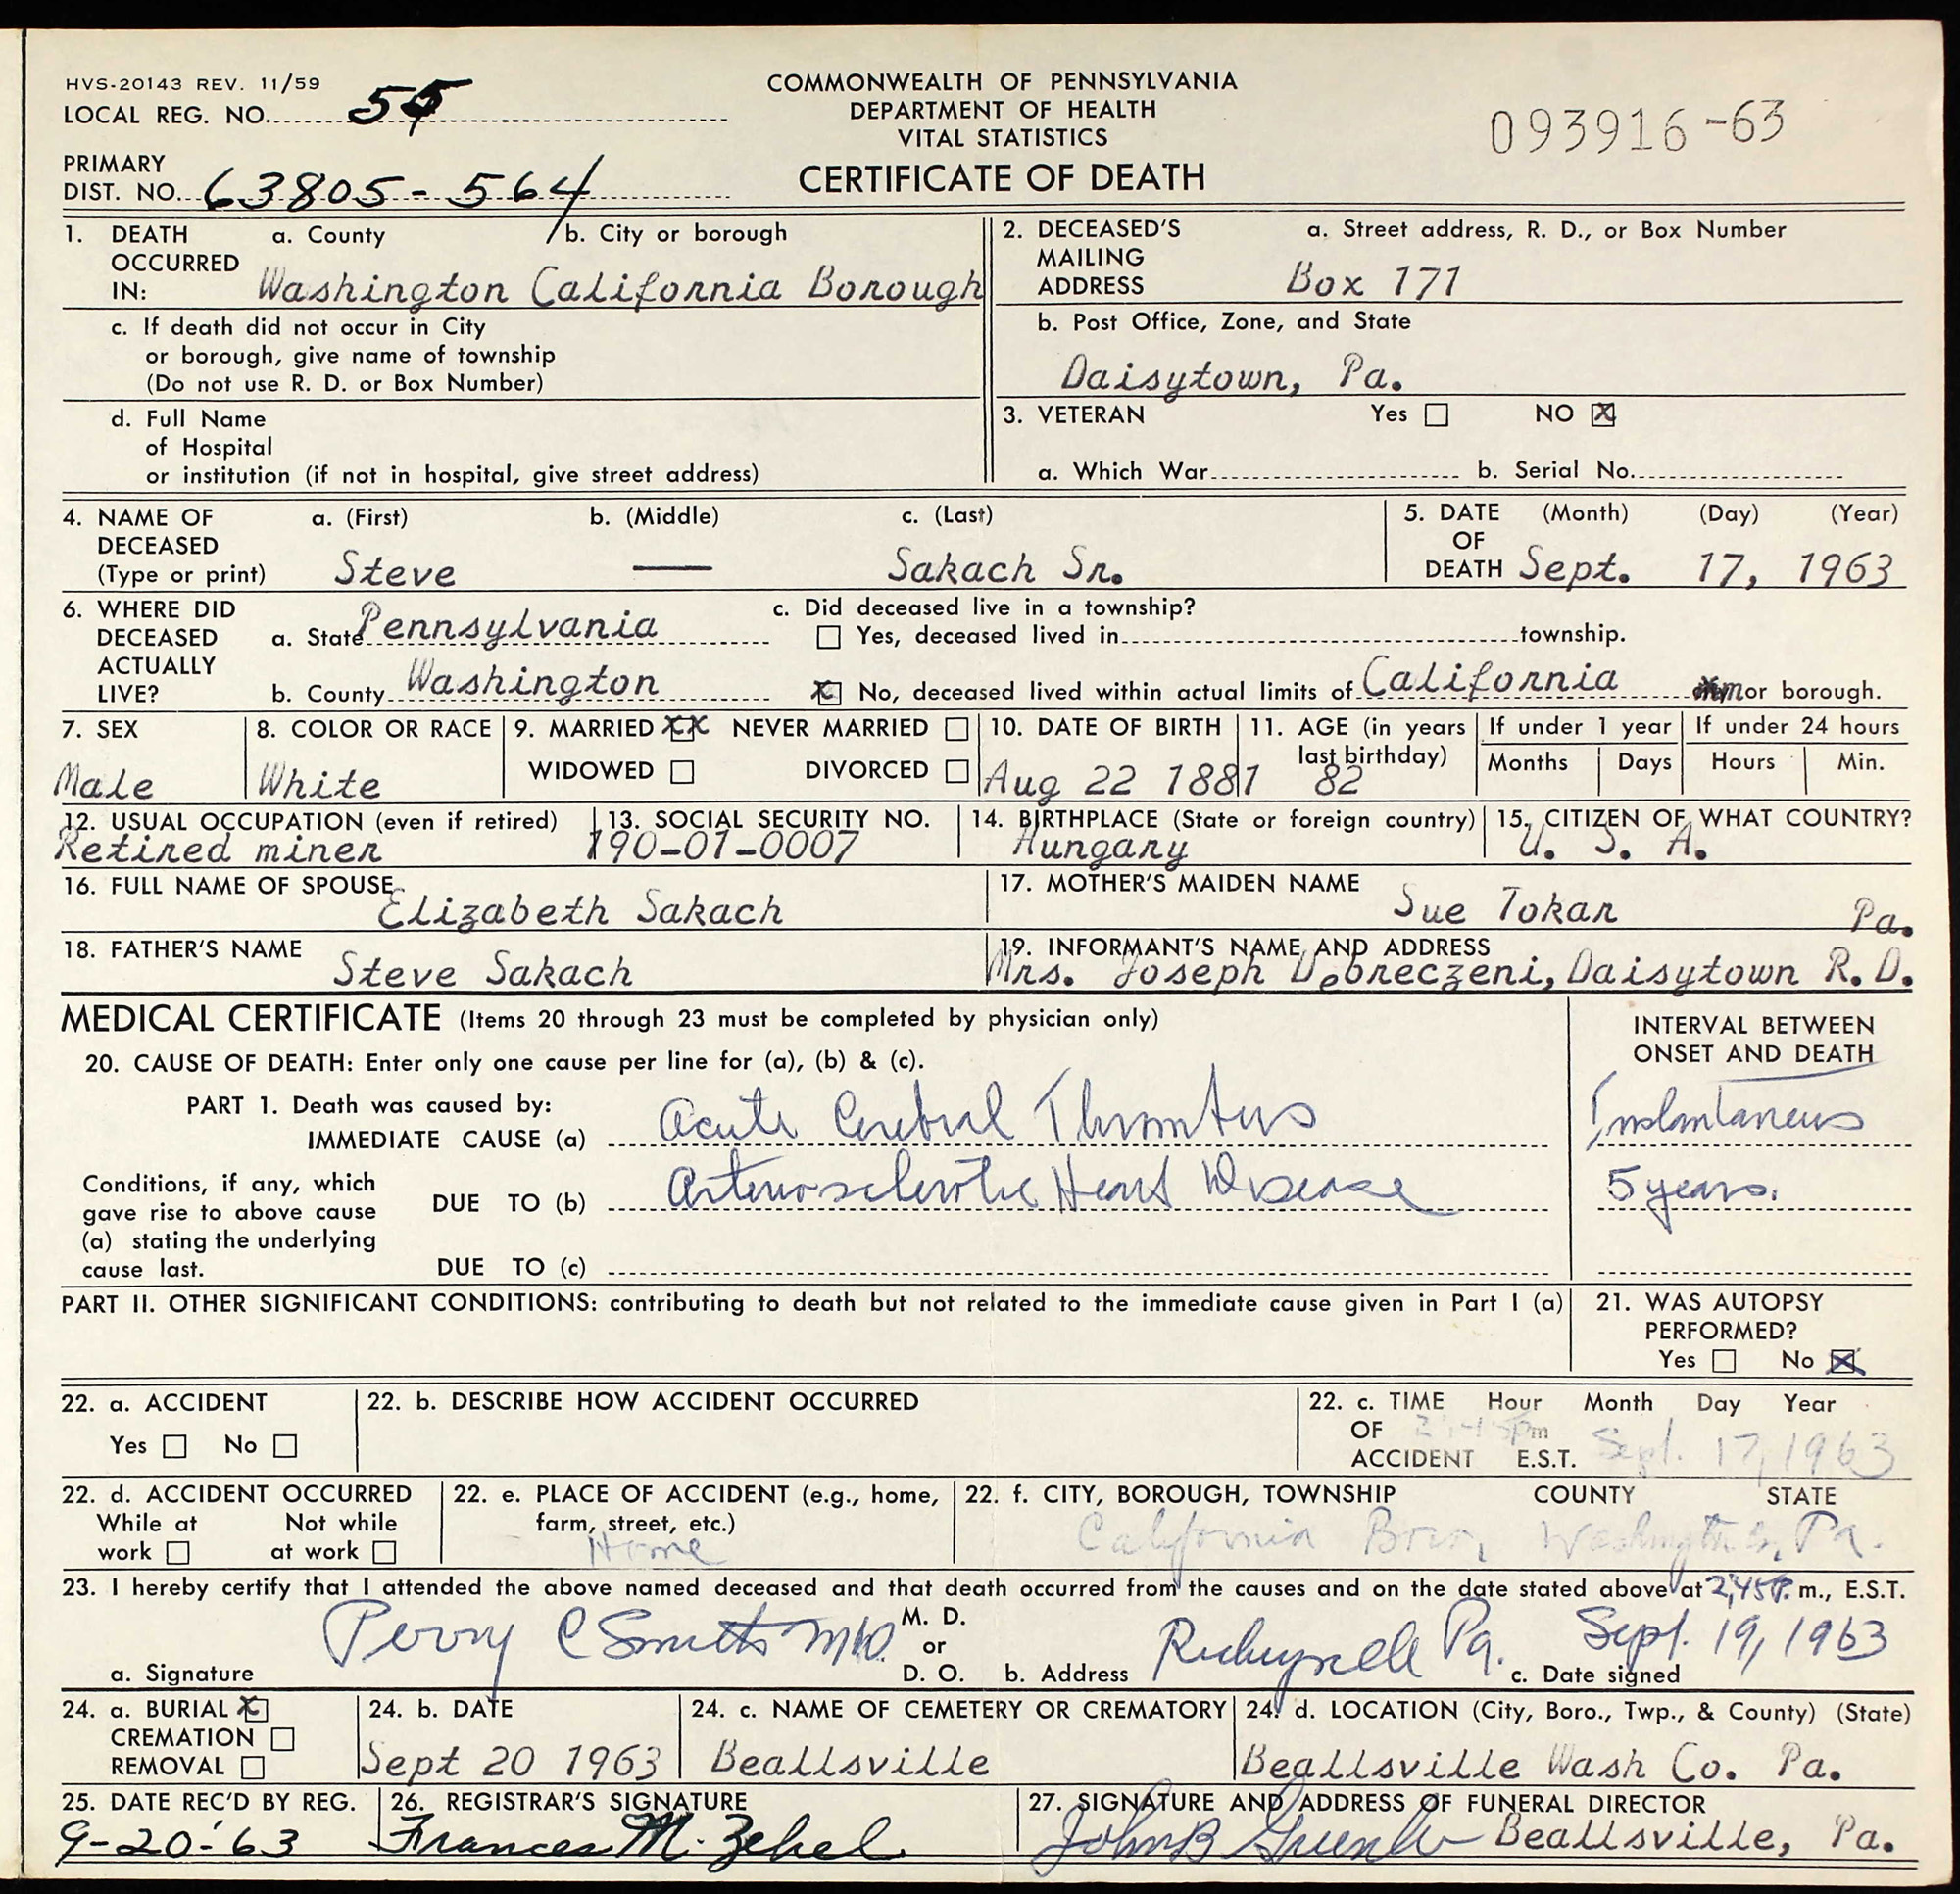 HVS-20143 REV. 11/59
LOCAL REG. NO.
PRIMARY
DIST. NO. 63805-564
COMMONWEALTH OF PENNSYLVANIA
DEPARTMENT OF HEALTH
VITAL STATISTICS
CERTIFICATE OF DEATH
093916-63
1. DEATH OCCURRED IN: a. County b. City or borough
Washington California Borough
c. If death did not occur in City
or borough, give name of township
(Do not use R. D. or Box Number)
d. Full Name
of Hospital
or institution (if not in hospital, give street address)
2. DECEASED'S MAILING ADDRESS a. Street address, R. D., or Box Number
Box 171
b. Post Office, Zone, and State
Daisytown, Pa.
3. VETERAN Yes NO X
a. Which War b. Serial No.
4. NAME OF DECEASED (Type or print) a. (First) b. (Middle) c. (Last)
Steve — Sakach Sr.
5. DATE OF DEATH (Month) (Day) (Year)
Sept. 17, 1963
6. WHERE DID DECEASED ACTUALLY LIVE?
a. State Pennsylvania
b. County Washington
c. Did deceased live in a township?
Yes, deceased lived in township.
X No, deceased lived within actual limits of California or borough.
7. SEX
Male
8. COLOR OR RACE
White
9. MARRIED XX NEVER MARRIED
WIDOWED DIVORCED
10. DATE OF BIRTH
Aug 22 1881
11. AGE (in years last birthday)
82
If under 1 year
Months Days
If under 24 hours
Hours Min.
12. USUAL OCCUPATION (even if retired)
Retired miner
13. SOCIAL SECURITY NO.
190-01-0007
14. BIRTHPLACE (State or foreign country)
Hungary
15. CITIZEN OF WHAT COUNTRY?
U. S. A.
16. FULL NAME OF SPOUSE
Elizabeth Sakach
17. MOTHER'S MAIDEN NAME
Sue Tokar
18. FATHER'S NAME
Steve Sakach
19. INFORMANT'S NAME AND ADDRESS
Mrs. Joseph Debreczeni, Daisytown R. D. Pa.
MEDICAL CERTIFICATE (Items 20 through 23 must be completed by physician only)
INTERVAL BETWEEN
ONSET AND DEATH
20. CAUSE OF DEATH: Enter only one cause per line for (a), (b) & (c).
PART 1. Death was caused by:
IMMEDIATE CAUSE (a) Acute Cerebral Thrombus Instantaneus
Conditions, if any, which
gave rise to above cause
(a) stating the underlying
cause last.
DUE TO (b) Arteriosclerotic Heart Disease 5 years.
DUE TO (c)
PART II. OTHER SIGNIFICANT CONDITIONS: contributing to death but not related to the immediate cause given in Part I (a)
21. WAS AUTOPSY
PERFORMED?
Yes No X
22. a. ACCIDENT
Yes No
22. b. DESCRIBE HOW ACCIDENT OCCURRED
22. c. TIME OF ACCIDENT Hour Month Day Year
pm E.S.T. Sept. 17, 1963
22. d. ACCIDENT OCCURRED
While at work Not while at work
22. e. PLACE OF ACCIDENT (e.g., home,
farm, street, etc.)
Home
22. f. CITY, BOROUGH, TOWNSHIP COUNTY STATE
California Boro, Washington Pa.
23. I hereby certify that I attended the above named deceased and that death occurred from the causes and on the date stated above at 2,45 P. m., E.S.T.
a. Signature Perry C Smith MD. M. D. or D. O.
b. Address Richeyville Pa.
c. Date signed Sept. 19, 1963
24. a. BURIAL X
CREMATION
REMOVAL
24. b. DATE
Sept 20 1963
24. c. NAME OF CEMETERY OR CREMATORY
Beallsville
24. d. LOCATION (City, Boro., Twp., & County) (State)
Beallsville Wash Co. Pa.
25. DATE REC'D BY REG.
9-20-'63
26. REGISTRAR'S SIGNATURE
Frances M. Zebel
27. SIGNATURE AND ADDRESS OF FUNERAL DIRECTOR
John B Beallsville, Pa.